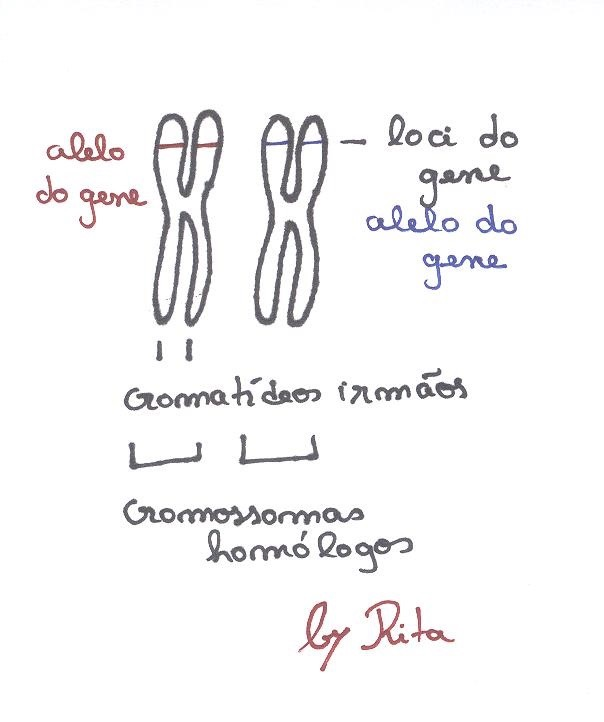 alelo
do gene
loci do
gene
alelo do
gene
Cromatídeos irmãos
Cromossomas
homólogos
by Rita